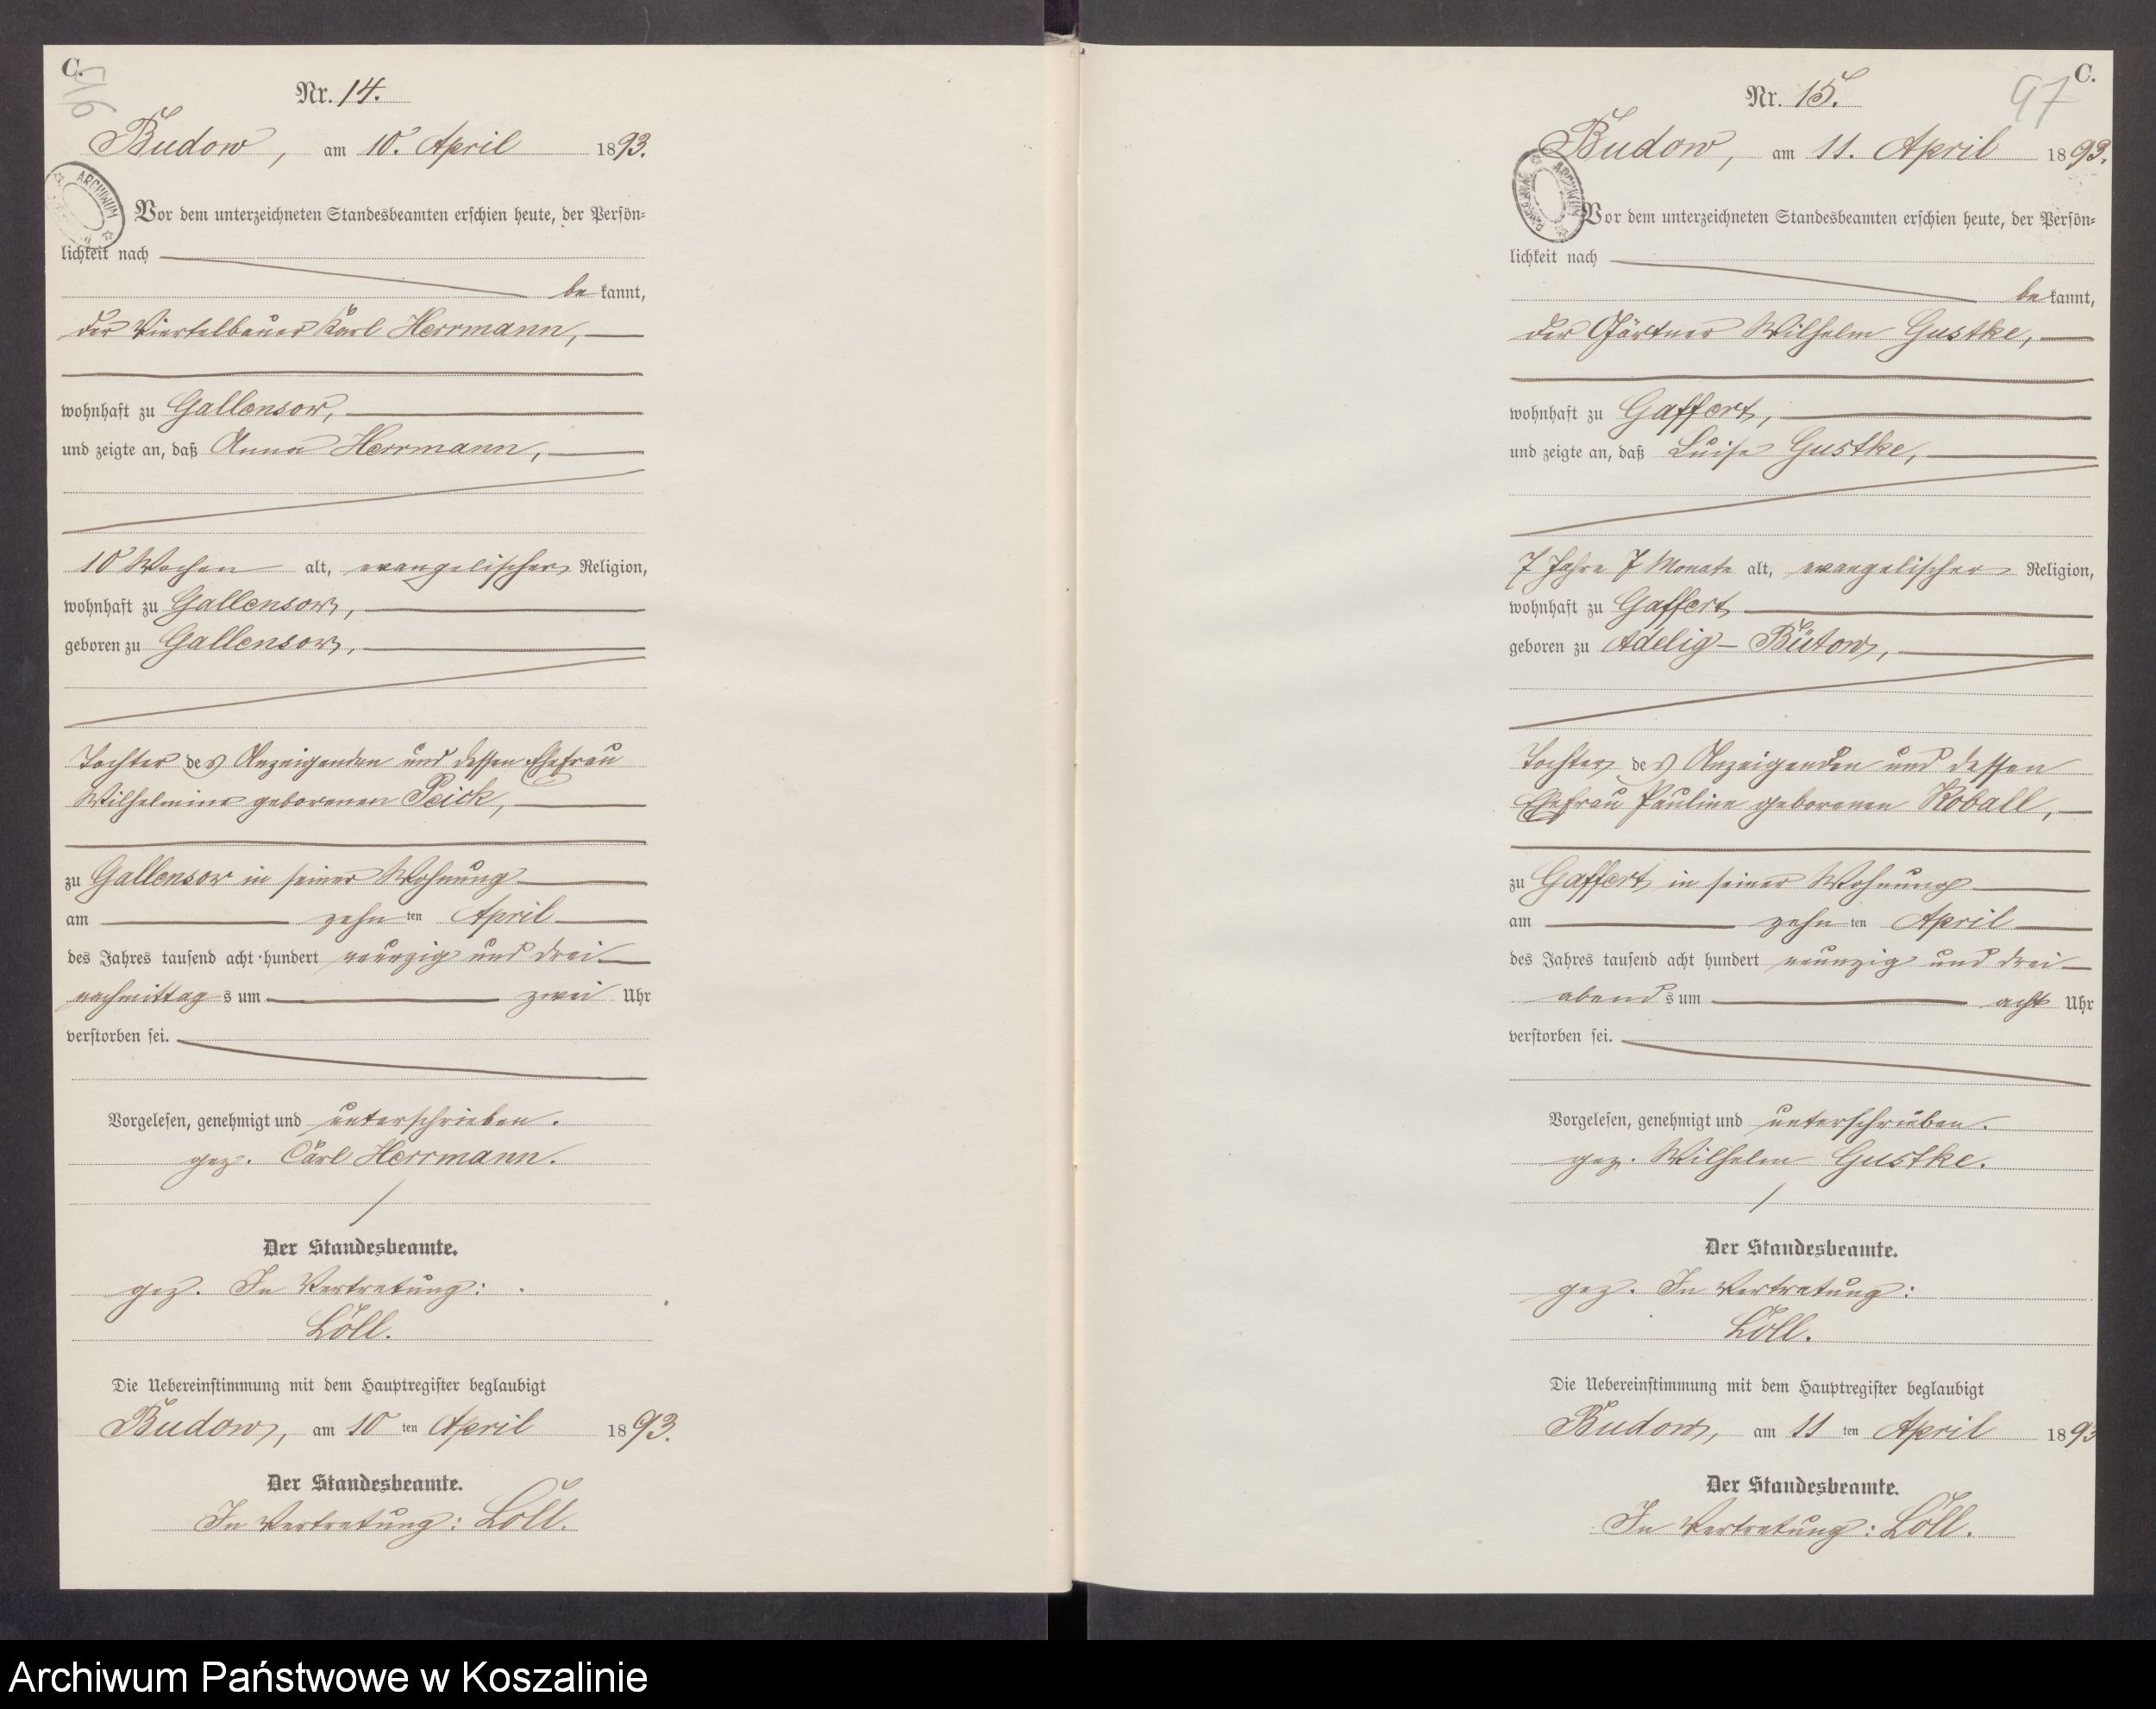 C.
Nr. 14.
Budow, am 10. April 1893.
ARCHIWUM
Vor dem unterzeichneten Standesbeamten erschien heute, der Persön=
lichkeit nach
be kannt,
der Viertelbauer Karl Herrmann,
wohnhaft zu Gallensow,
und zeigte an, daß Anna Herrmann,
10 Wochen alt, evangelischer Religion,
wohnhaft zu Gallensow,
geboren zu Gallensow,
Tochter des Anzeigenden und dessen Ehefrau
Wilhelmine geborenen Peick,
zu Gallensow in seiner Wohnung
am zehn ten April
des Jahres tausend acht hundert neunzig und drei
nachmittag s um zwei Uhr
verstorben sei.
Vorgelesen, genehmigt und unterschrieben.
gez. Carl Herrmann.
Der Standesbeamte.
gez. In Vertretung:
Löll.
Die Uebereinstimmung mit dem Hauptregister beglaubigt
Budow, am 10 ten April 1893.
Der Standesbeamte.
In Vertretung: Löll.
C.
97
Nr. 15.
Budow, am 11. April 1893.
ARCHIWUM
Vor dem unterzeichneten Standesbeamten erschien heute, der Persön=
lichkeit nach
be kannt,
der Gärtner Wilhelm Gustke,
wohnhaft zu Gaffert,
und zeigte an, daß Luise Gustke,
7 Jahre 7 Monate alt, evangelischer Religion,
wohnhaft zu Gaffert
geboren zu Adelig-Bütow,
Tochter des Anzeigenden und dessen
Ehefrau Pauline geborenen Kovall,
zu Gaffert in seiner Wohnung
am zehn ten April
des Jahres tausend acht hundert neunzig und drei
abend s um acht Uhr
verstorben sei.
Vorgelesen, genehmigt und unterschrieben.
gez. Wilhelm Gustke.
Der Standesbeamte.
gez. In Vertretung:
Löll.
Die Uebereinstimmung mit dem Hauptregister beglaubigt
Budow, am 11 ten April 1893
Der Standesbeamte.
In Vertretung: Löll.
Archiwum Państwowe w Koszalinie